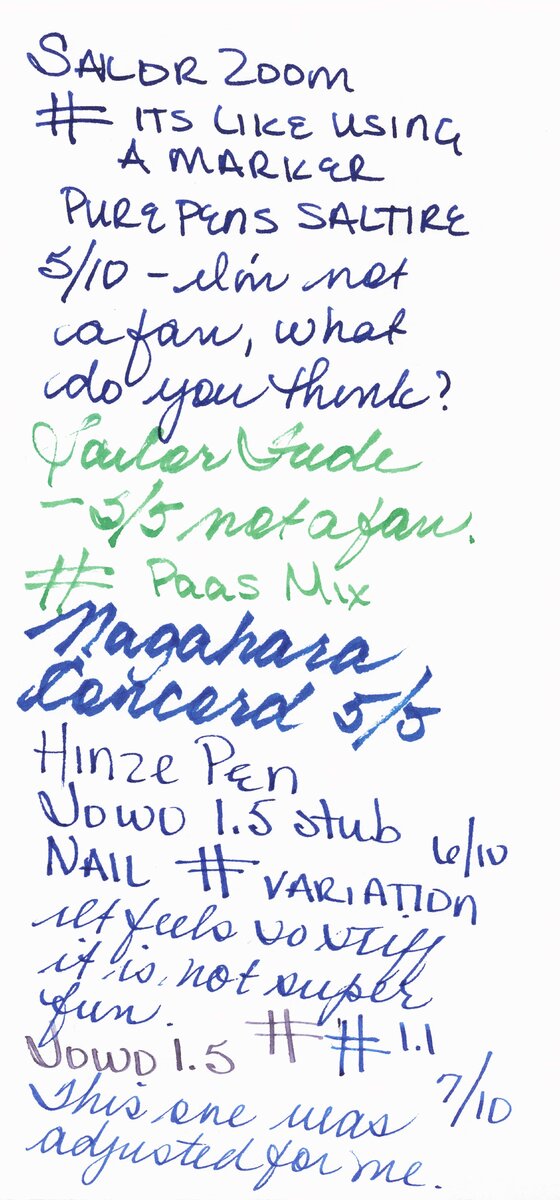 SAILOR ZOOM
# ITS LIKE USING
A MARKER
PURE PENS SALTIRE
5/10 - I'm not
a fan, what
do you think?
Sailor Fude
- 5/5 not a fan.
# Paas Mix
Nagahara
Concord 5/5
Hinze Pen
JOWO 1.5 stub 6/10
NAIL # VARIATION
it feels so stiff
it is not super
fun.
JOWO 1.5 # # 1.1
This one was 7/10
adjusted for me.